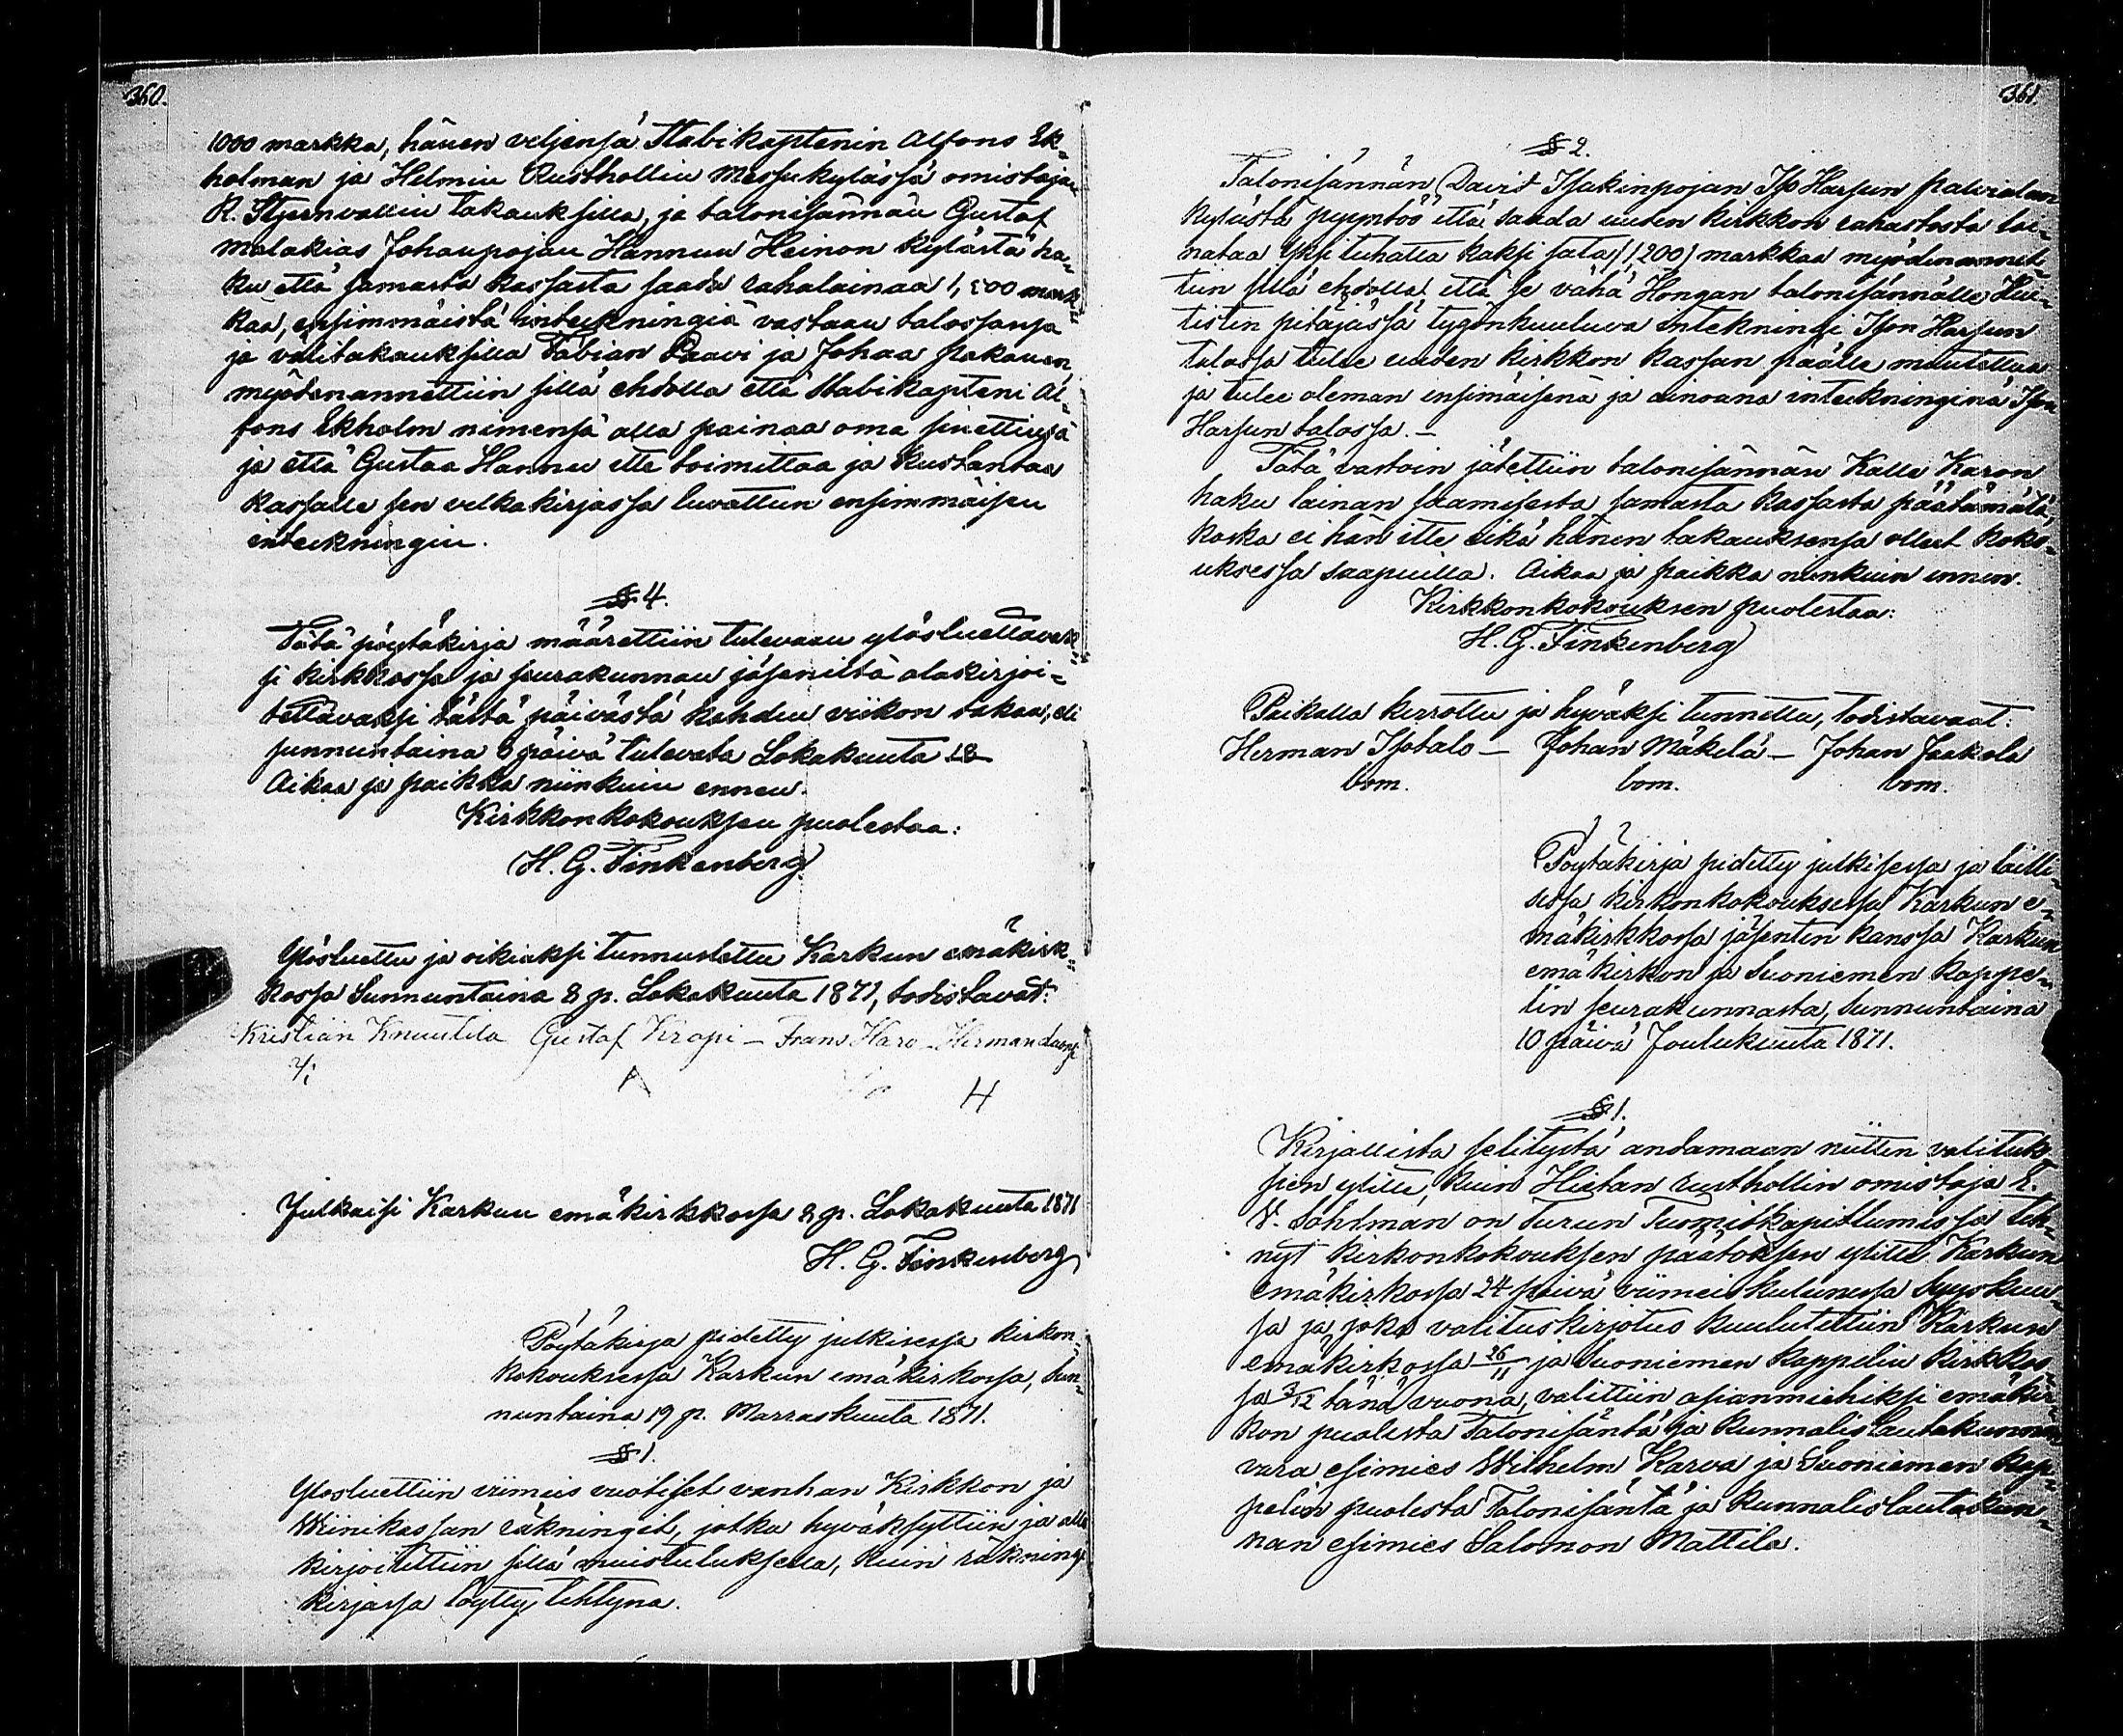 360.
1000 markka, hänen veljensä Stabikaptenin Alfons Ek-
holman ja Helmin Rusthollin Messukylässä omistajan
R. Stjernvallin takauksilla, ja talonisännän Gustaf
Malakias Johanpojan Hannun Heinon kylästä ha-
ku että samasta kassasta saada rahalainaa 1,500 mark-
kaa, ensimmäistä inteckningiä vastaan talossansa
ja välitakauksilla Fabian Paavi ja Johaa Pakanen
myödenannettiin sillä ehdolla että Stabikapteni Al-
fons Ekholm nimensä alla painaa oma sinettinsä
ja että Gustaa Hannu itte toimittaa ja kustantaa
kassalle sen velkakirjassa luvattun ensimmäisen
inteckningin.
§ 4.
Tätä pöytäkirja määrettiin tulevaan ylösluettavak-
si kirkkossa ja seurakunnan jäseniltä alakirjoi-
tettavaksi tästä päivästä kahden viikon takaa, eli
sunnuntaina 8 päivä tulevata Lokakuuta
Aikaa ja paikka niinkuin ennen.
Kirkkonkokouksen puolestaa:
H. G. Finkenberg
Ylösluettu ja oikiaksi tunnustettu Karkun emäkirk-
kossa Sunnuntaina 8 p. Lokakuuta 1871, todistavat:
Kristian Knuutila Gustaf Krapi – Frans Haro – Herman
A
H
Julkaisi Karkun emäkirkkossa 8 p. Lokakuuta 1871
H. G. Finkenberg
Pöytäkirja pidetty julkisessa kirkon-
kokouksessa Karkun emäkirkossa, Sun-
nuntaina 19 p. Marraskuuta 1871.
§ 1.
Ylösluettiin viimeis vuotiset vanhan Kirkkon ja
Wiinikassan räkningit, jotka hyväksyttiin ja alle
kirjoitettiin sillä muistutuksella, kuin räkningi
kirjassa löytty tehtynä.
361.
§ 2.
Talonisännän David Isakinpojan Iso Harsun Palvialan
kylästä pyyntöö että saada uuden kirkkon rahastosta lai-
nataa yksi tuhatta kaksi sata (1,200) markkaa myödenannet-
tiin sillä ehdolla että se vähä Hongan talonisännälle Hui-
tistin pitäjässä tygönkuuluva intekningi Ison Harsun
talossa tulee uuden kirkkon kassan päälle muutettua
ja tulee oleman ensimäisenä ja ainoana inteckninginä Ison
Harsun talossa. –
Tätä vastoin jätettiin talonisännän Kalle Karon
haku lainan saamisesta samasta kassasta päätämätä,
koska ei hän itte eikä hänen takauksensa ollut koko-
uksessa saapuilla. Aikaa ja paikka niinkuin ennen.
Kirkkonkokouksen puolestaa:
H. G. Finkenberg
Paikalla kerrottu ja hyväksi tunnettu, todistavaat:
Herman Isotalo – Johan Mäkelä – Johan Jaakola
bom. bom. bom.
Pöytäkirja pidetty julkisessa ja lailli-
sessa kirkonkokouksessa Karkun e-
mäkirkkossa jäsenten kanssa Karkun
emäkirkon ja Suoniemen Kappe-
lin seurakunnasta, Sunnuntaina
10 päivä Joulukuuta 1871.
§ 1.
Kirjallista selitystä andamaan niitten valituk-
sien ylitte, kuin Hietan rusthollin omistaja K.
V. Sohlman on Turun Tuomiokapitlumissa teh-
nyt kirkonkokouksen päätöksen ylitte Karkun
emäkirkossa 24 päivä viimeiskulunessa Syyskuu-
sa ja joka valituskirjotus kuulutettiin Karkun
emäkirkossa 26/11 ja Suoniemen Kappelin kirkkos-
sa 3/12 tänä vuona, valittiin asianmiehiksi emäkir-
kon puolesta Talonisäntä ja Kunnalislautakunnan
vara esimies Wilhelm Karva ja Suoniemen Kap-
pelin puolesta Talonisäntä ja Kunnalislautakun-
nan esimies Salomon Mattila.